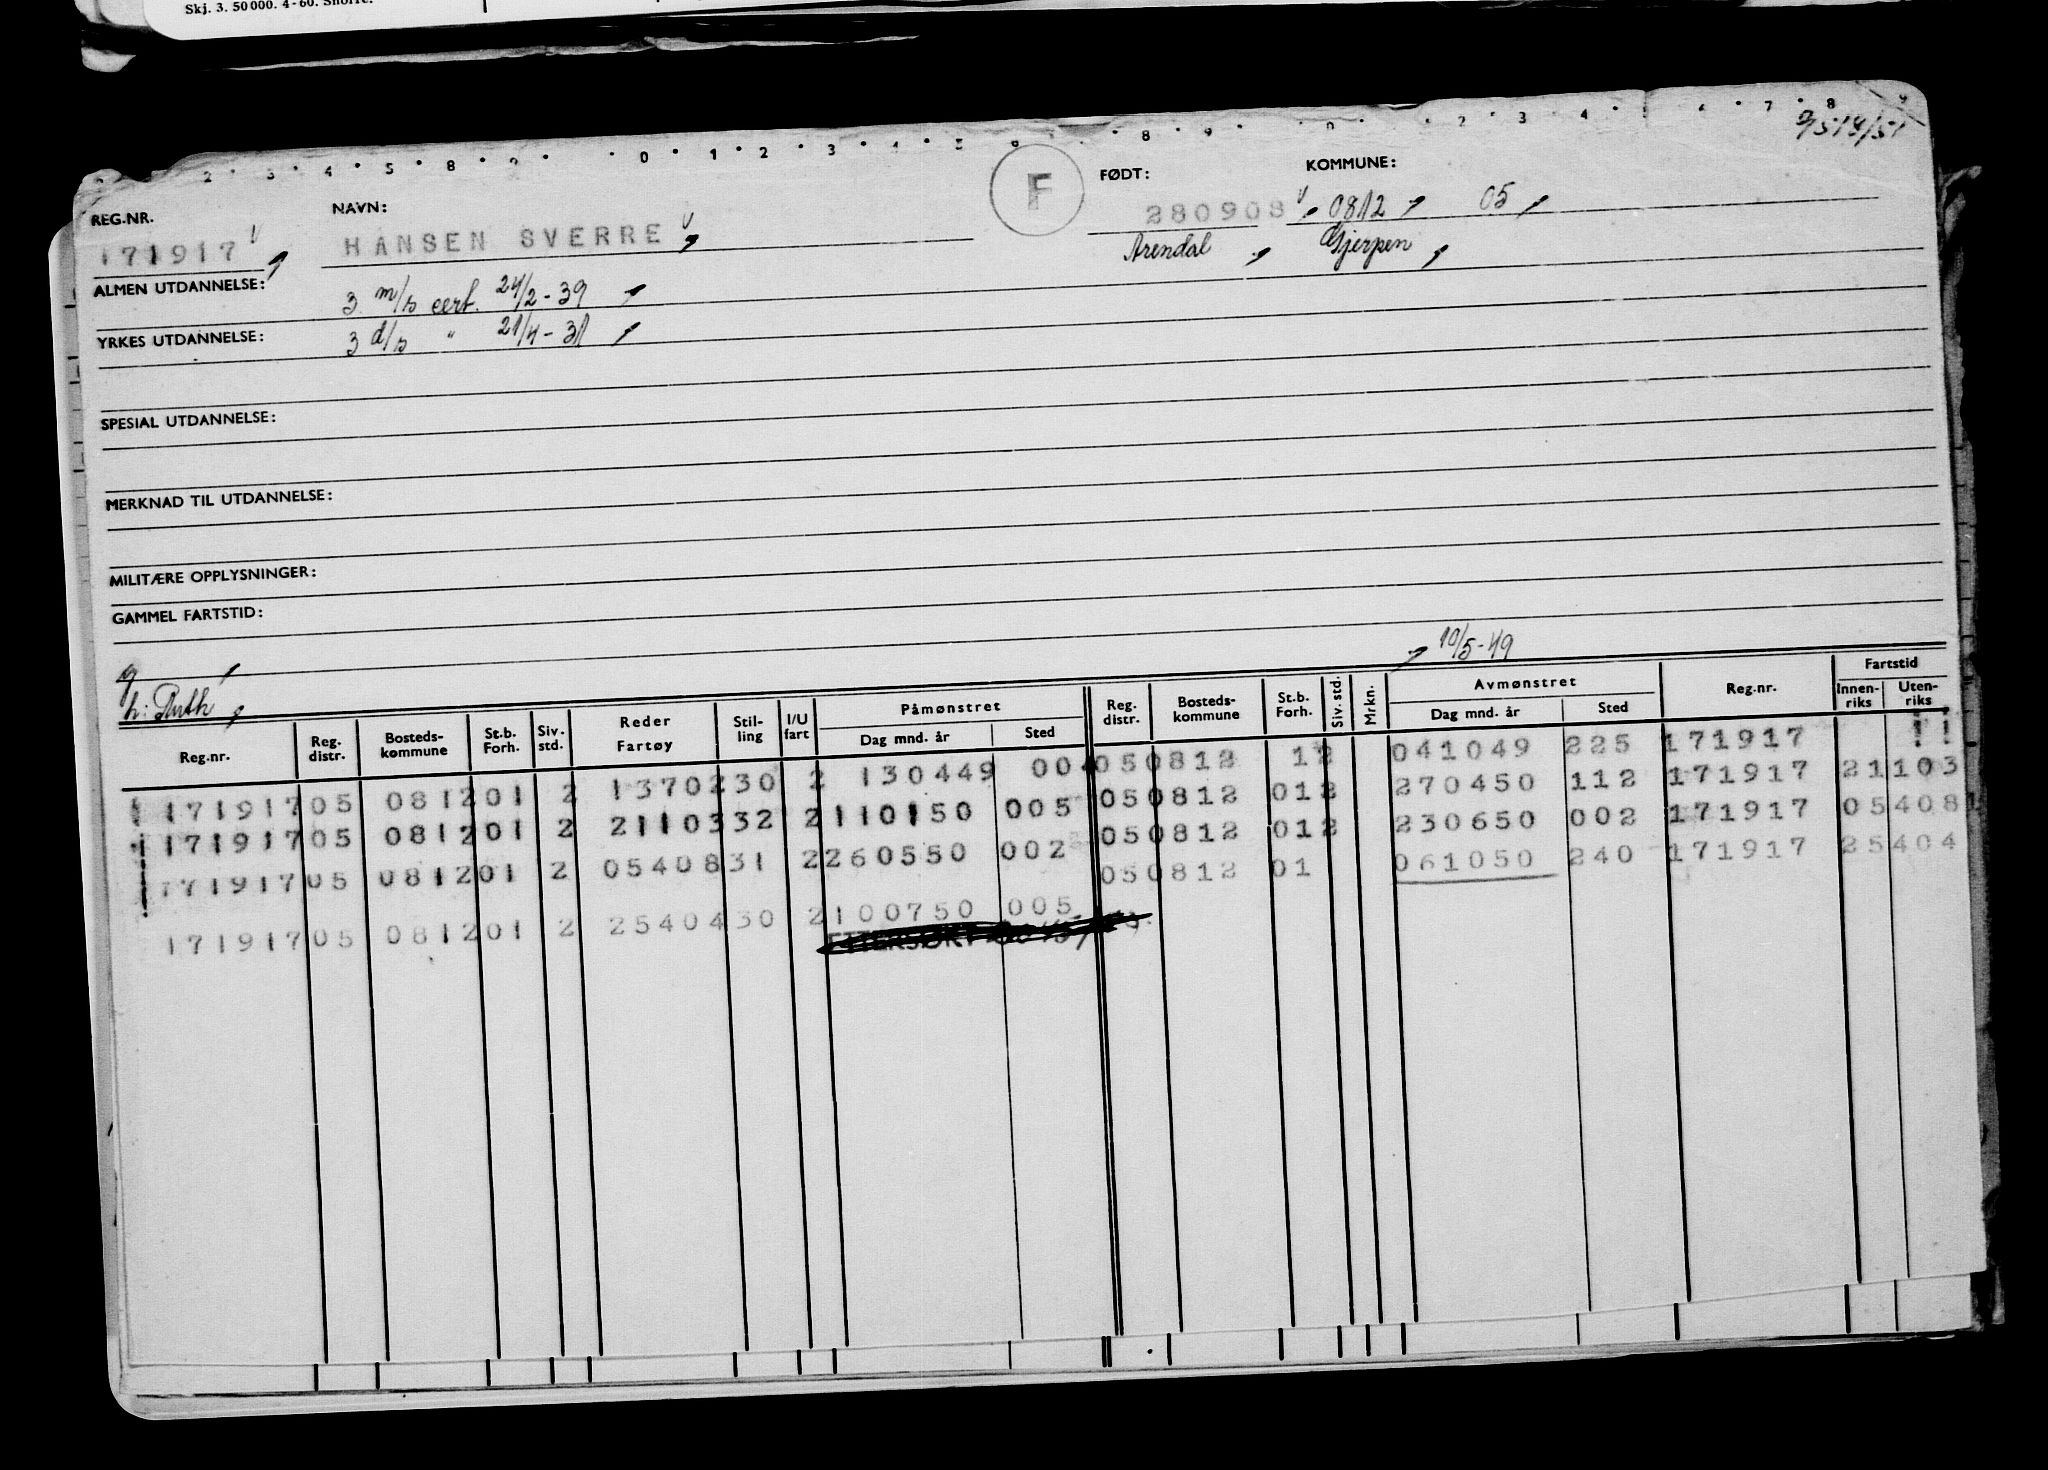 Skj. 3. 50 000. 4 - 60. Snorre.
9518/51
REG.NR. NAVN: F FØDT: KOMMUNE:
171917 HANSEN SVERRE 280908 0812 05
Arendal Gjerpen
ALMEN UTDANNELSE: 3 m/s cert. 24/2 - 39
YRKES UTDANNELSE: 3 d/s " 21/4 - 31
SPESIAL UTDANNELSE:
MERKNAD TIL UTDANNELSE:
MILITÆRE OPPLYSNINGER:
GAMMEL FARTSTID:
10/5 - 49
g
h: Ruth
Reg.nr. Reg. distr. Bosteds- kommune St.b. Forh. Siv. std. Reder Fartøy Stil- ling I/U fart Påmønstret Dag mnd. år Sted Reg. distr. Bosteds- kommune St.b. Forh. Siv. std. Mrkn. Avmønstret Dag mnd. år Sted Reg.nr. Fartstid Innen- riks Uten- riks
171917 05 0812 01 2 13702 30 2 130449 00 05 0812 1 2 041049 225 171917
171917 05 0812 01 2 21103 32 2 110150 005 05 0812 01 2 270450 112 171917 21 103
171917 05 0812 01 2 05408 31 2 260550 002 05 0812 01 2 230650 002 171917 05 408
171917 05 0812 01 2 25404 30 2 100750 005 05 0812 01 061050 240 171917 25 404
ETTERSØKT